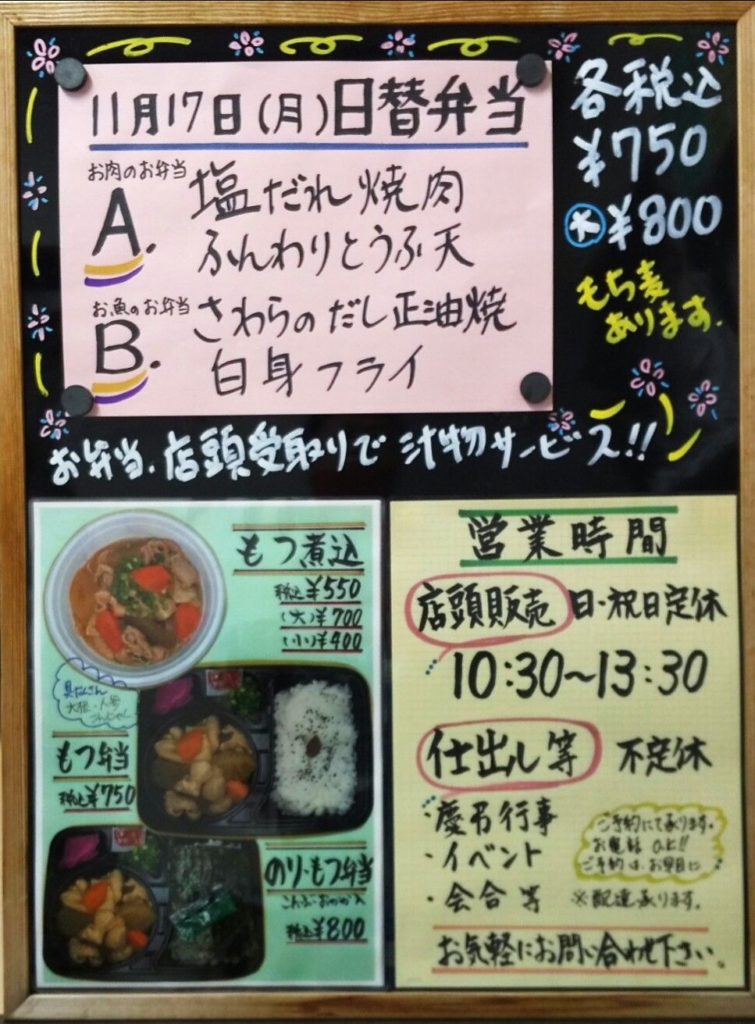 11月17日(月)日替弁当
お肉のお弁当
A.
塩だれ焼肉
ふんわりとうふ天
お魚のお弁当
B.
さわらのだし正油焼
白身フライ
各税込
¥750
大¥800
もち麦
あります.
お弁当、店頭受取りで 汁物サービス!!
もつ煮込
税込¥550
(大)¥700
(小)¥400
具だくさん
大根・人参
こんにゃく
もつ弁当
税込¥750
のり・もつ弁当
こんぶ・おかか入
税込¥800
営業時間
店頭販売 日・祝日定休
10:30~13:30
仕出し等 不定休
・慶弔行事
・イベント
・会合等
ご予約にて承ります。
お電話 O.K!!
ご予約は、お早目に
※配達承ります。
お気軽にお問い合わせ下さい。